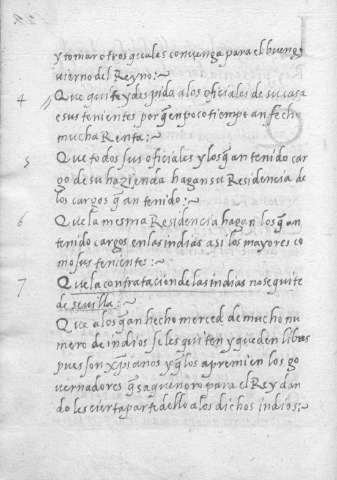 y tomar otros quales convenga para el buen go
vierno del Reyno:~
4 Que quite y despida a los oficiales de su casa
e sus tenientes porq̃ en poco tiempo an fecho
mucha Renta:~
5 Que todos sus oficiales y los q̃ an tenido car
go de su hazienda hagan su Residencia de
los cargos q̃ an tenido:~
6 Que la mesma Residencia hagan los q̃ an
tenido cargos en las indias asi los mayores co
mo sus tenientes:~
7 Que la contratacion de las indias no se quite
de sevilla:~
Que a los q̃ an hecho merced de mucho nu
mero de indios se les quiten y queden libres
pues son xp̃ianos y q̃ los apremien los go
vernadores q̃ saquen oro para el Rey dan
doles cierta parte dello a los dichos indios:~